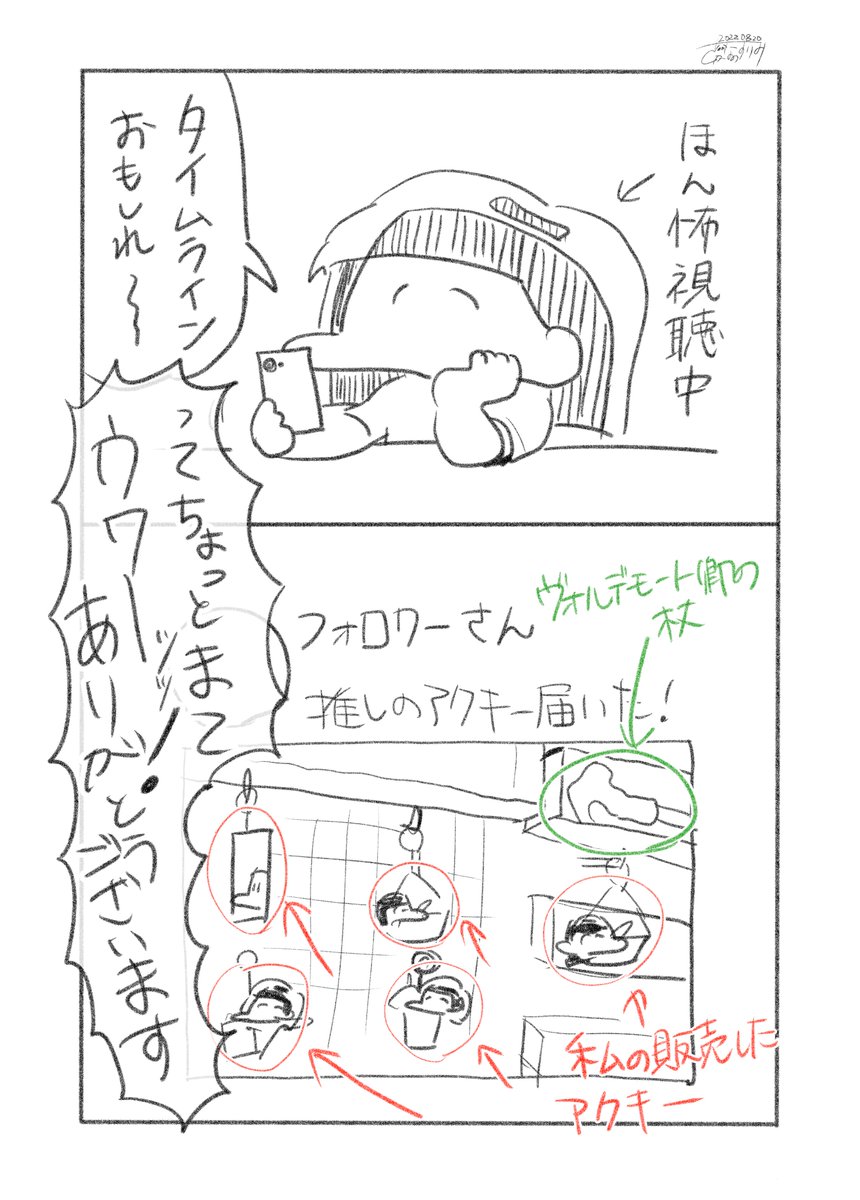 2022.08.20
ほん怖視聴中
タイムライン
おもしれ〜〜
ってちょっとまて
ウワーッッ!
ありがとうございます
フォロワーさん
推しのアクキー届いた!
ヴォルデモート卿の
杖
私の販売した
アクキー